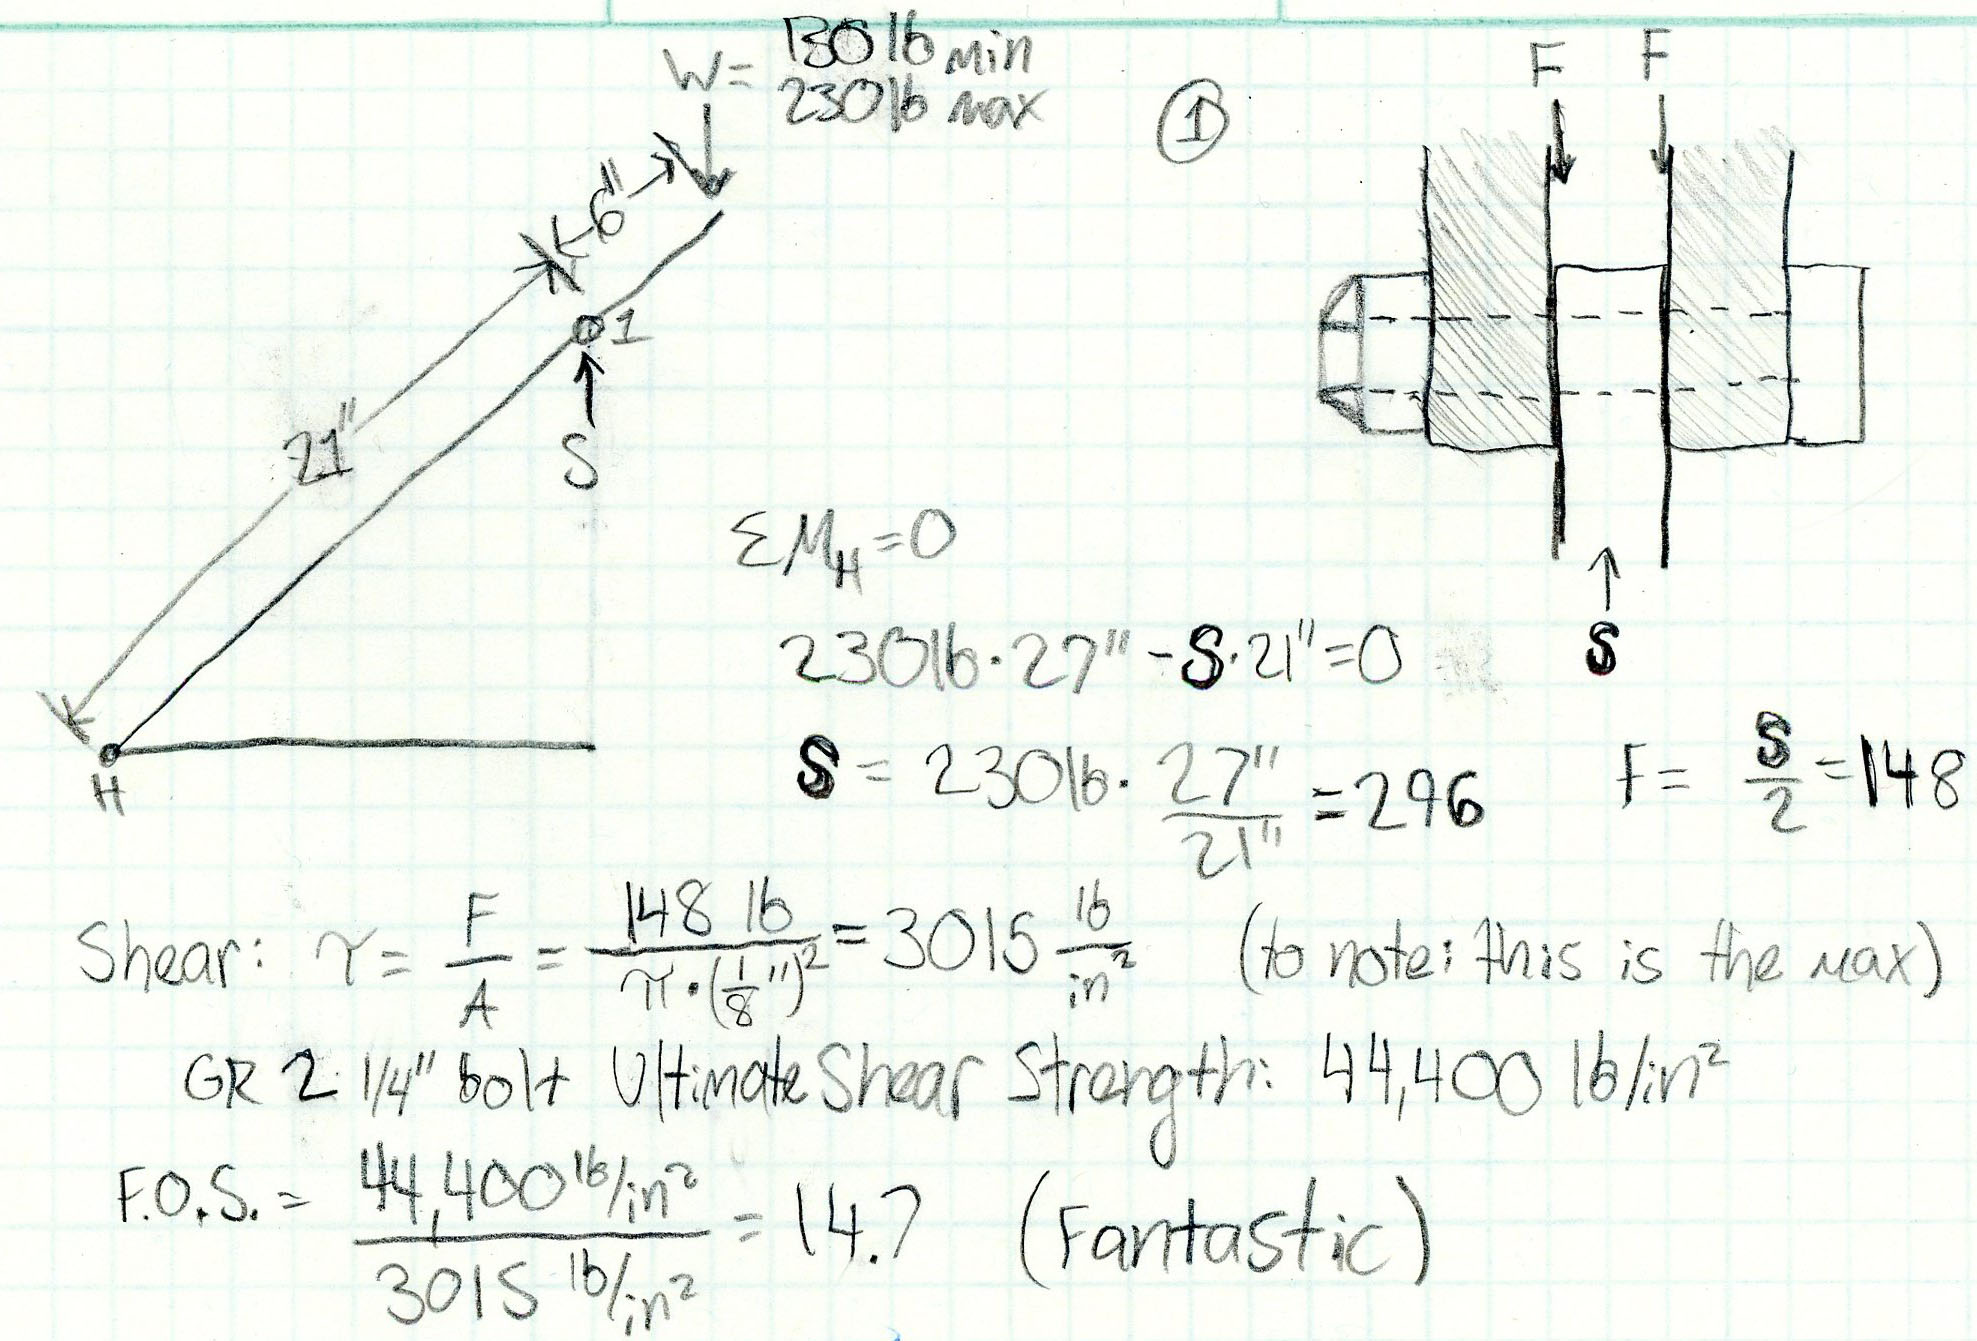 W = 130 lb min
230 lb max
①
F F
6"
1
21"
S
H
ΣM_H = 0
S
230 lb · 27" - S · 21" = 0
S = 230 lb · 27"/21" = 296
F = S/2 = 148
Shear: τ = F/A = 148 lb/π·(1/8")² = 3015 lb/in² (to note: this is the max)
GR 2 1/4" bolt Ultimate Shear Strength: 44,400 lb/in²
F.O.S. = 44,400 lb/in²/3015 lb/in² = 14.7 (Fantastic)